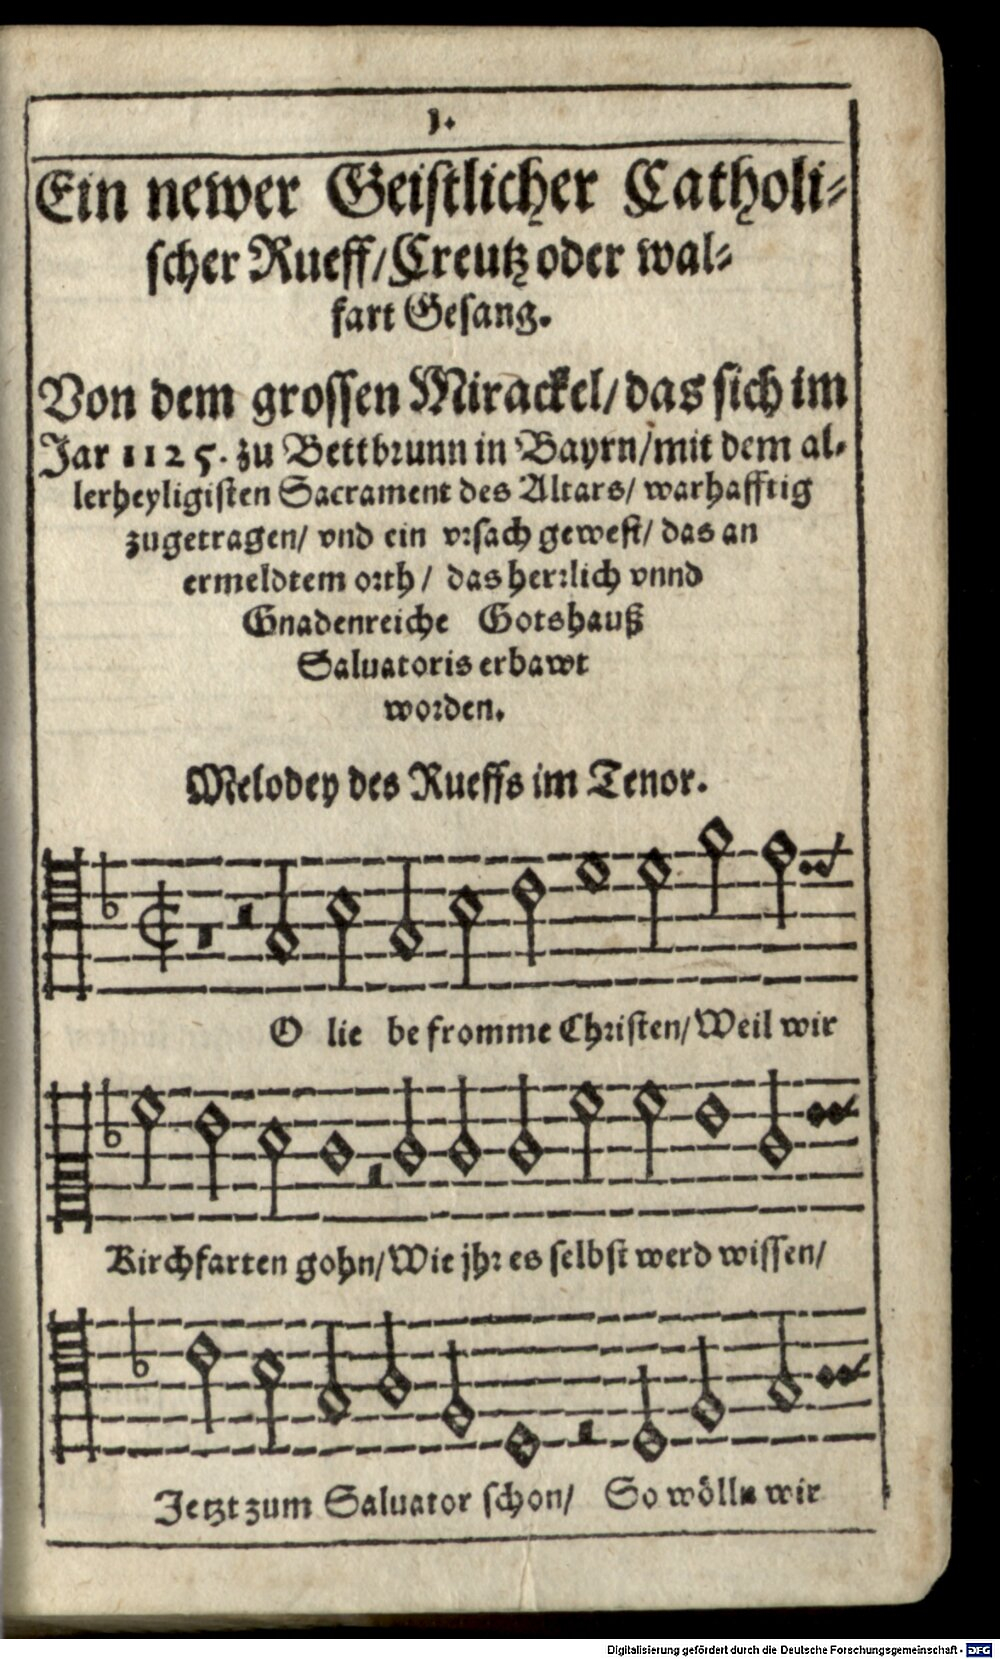 1.
Ein newer Geistlicher Catholi-
scher Rueff/Creutz oder wal-
fart Gesang.
Von dem grossen Mirackel/das sich im
Jar 1125. zu Bettbrunn in Bayrn/mit dem al-
lerheyligisten Sacrament des Altars/ warhafftig
zugetragen/ vnd ein vrsach gewest/ das an
ermeldtem orth/ das herrlich vnnd
Gnadenreiche Gotshauß
Saluatoris erbawt
worden.
Melodey des Rueffs im Tenor.
O lie be fromme Christen/Weil wir
Kirchfarten gohn/Wie jhr es selbst werd wissen/
Jetzt zum Saluator schon/ So wölln wir
Digitalisierung gefördert durch die Deutsche Forschungsgemeinschaft - DFG